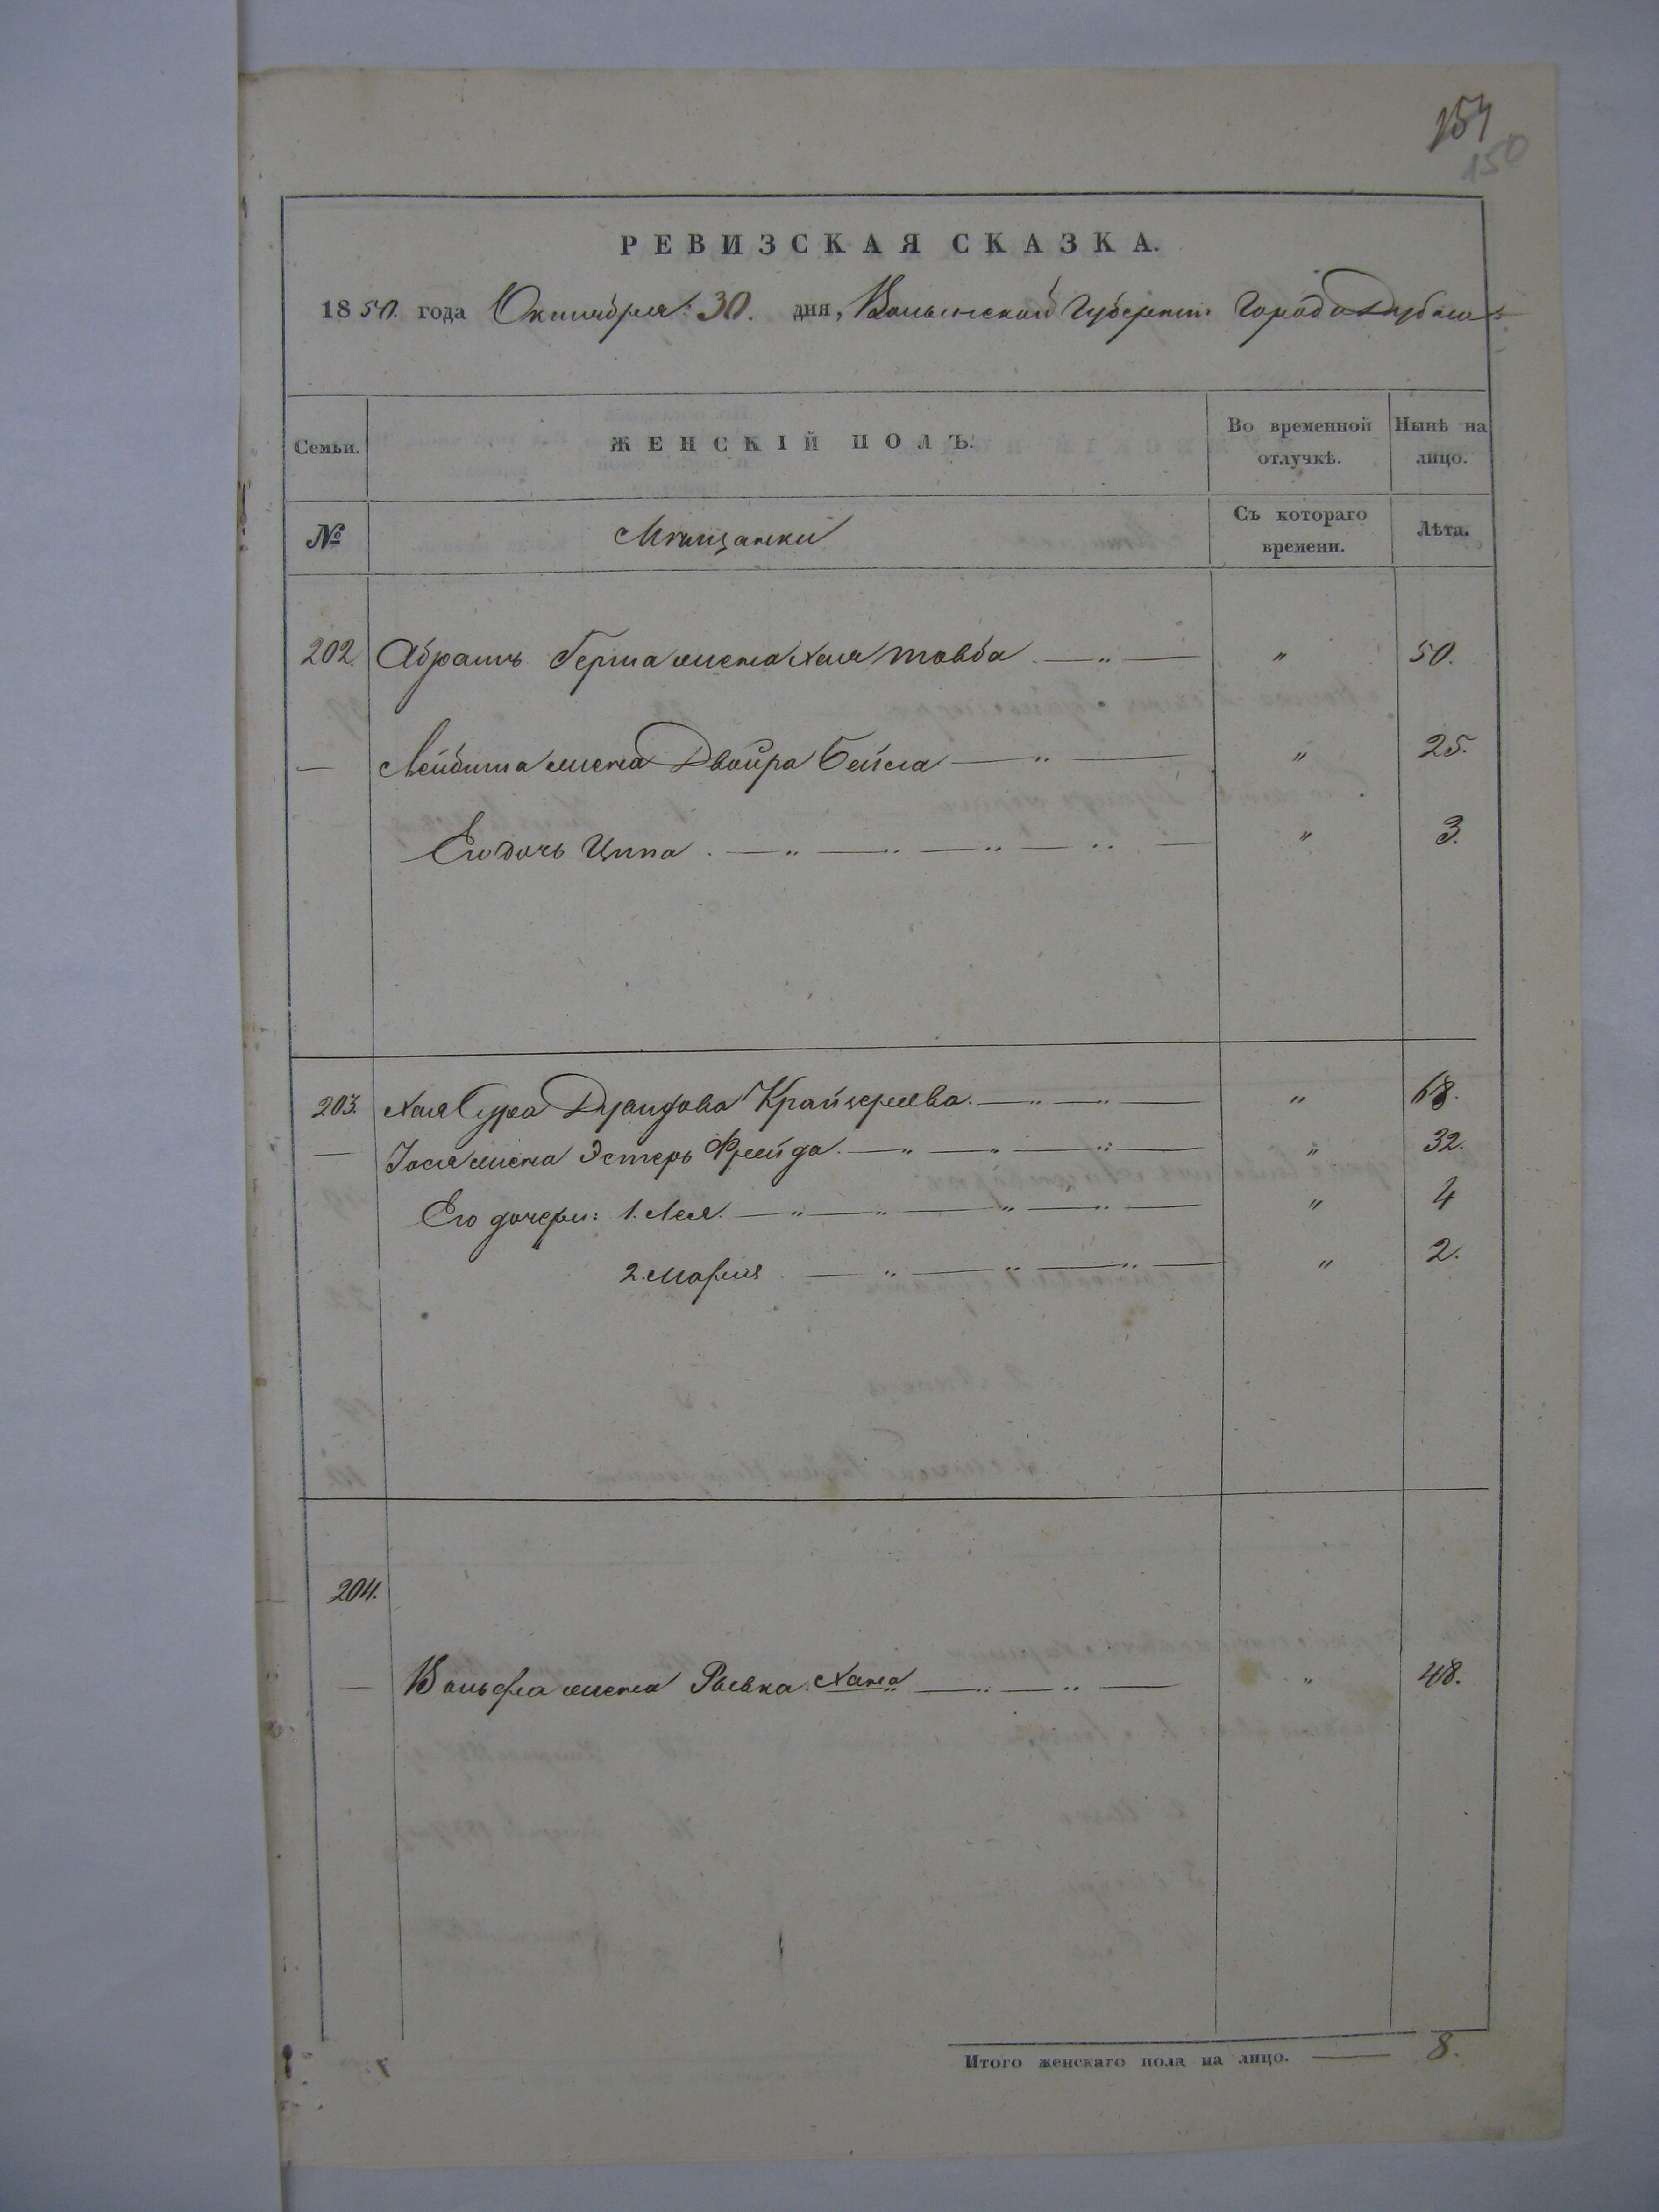 154
150
РЕВИЗСКАЯ СКАЗКА.
1850. года Октября 30. дня, Волынской Губерніи Города Дубно
Семьи. ЖЕНСКІЙ ПОЛЪ. Во временной отлучкѣ. Нынѣ на лицо.
№ Мѣщанки Съ котораго времени. Лѣта.
202. Абрамъ Герша жена Хая Товба — „ — „ 50.
— Лейбиша жена Двойра Бейла — „ — „ 25.
Его дочь Ципа. — „ — „ — „ — „ — „ 3.
203. Хая Сура Крайцерова. — „ — „ — „ 68.
— Іося жена Эстеръ Фрейда. — „ — „ — „ — „ 32.
Его дочери: 1. Лея. — „ — „ — „ — „ — „ 4
2. Марія — „ — „ — „ — „ 2.
204.
— Вольфа жена Рывка Хана — „ — „ — „ 48.
Итого женскаго пола на лицо. — 8.